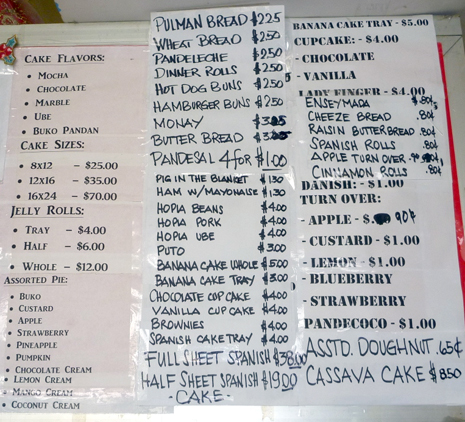 CAKE FLAVORS:
• MOCHA
• CHOCOLATE
• MARBLE
• UBE
• BUKO PANDAN
CAKE SIZES:
• 8X12 – $25.00
• 12X16 – $35.00
• 16X24 – $70.00
JELLY ROLLS:
• TRAY – $4.00
• HALF – $6.00
• WHOLE – $12.00
ASSORTED PIE:
• BUKO
• CUSTARD
• APPLE
• STRAWBERRY
• PINEAPPLE
• PUMPKIN
• CHOCOLATE CREAM
• LEMON CREAM
• MANGO CREAM
• COCONUT CREAM
PULMAN BREAD $2.25
WHEAT BREAD $2.50
PANDELECHE $2.50
DINNER ROLLS $2.50
HOT DOG BUNS $2.50
HAMBURGER BUNS $2.50
MONAY
BUTTER BREAD
PANDESAL 4 FOR $1.00
PIG IN THE BLANKET $1.30
HAM W/MAYONAISE 1.30
HOPIA BEANS $4.00
HOPIA PORK $4.00
HOPIA UBE $4.00
PUTO $3.00
BANANA CAKE WHOLE $5.00
BANANA CAKE TRAY $3.00
CHOCOLATE CUP CAKE $4.00
VANILLA CUP CAKE $4.00
BROWNIES $4.00
SPANISH CAKE TRAY $4.00
FULL SHEET SPANISH $38.00
HALF SHEET SPANISH $19.00
- CAKE -
BANANA CAKE TRAY - $5.00
CUPCAKE: - $4.00
- CHOCOLATE
- VANILLA
LADY FINGER - $4.00
ENSEYMADA $.80¢
CHEEZE BREAD .80¢
RAISIN BUTTERBREAD .80¢
SPANISH ROLLS .80¢
APPLE TURN OVER
CINNAMON ROLLS .80¢
DANISH: - $1.00
TURN OVER:
- APPLE - $. 90¢
- CUSTARD - $1.00
- LEMON - $1.00
- BLUEBERRY
- STRAWBERRY
PANDECOCO - $1.00
ASSTD. DOUGHNUT .65¢
CASSAVA CAKE $8.50